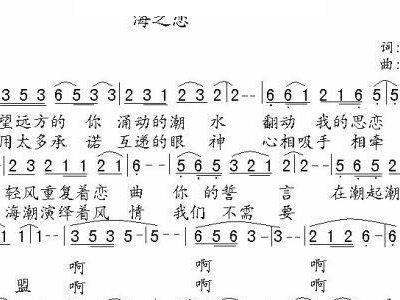 海之恋
词:
曲:
353 6535 3 | 231 2323 2-- | 661 221 65 5
望远方的 你 涌动的潮 水 翻动 我的思恋
用太多承 诺 互递的眼 神 心相吸手 相牵
23 21121 | 565 356 1-- |
轻风重复着恋 曲 你的 誓 言 在潮起潮
海潮演绎着风 情 我们 不需 要
1-- | 3535 - 5 - | 6563 - 3 -- | 2126 -
啊 啊 啊
盟 啊 啊 啊